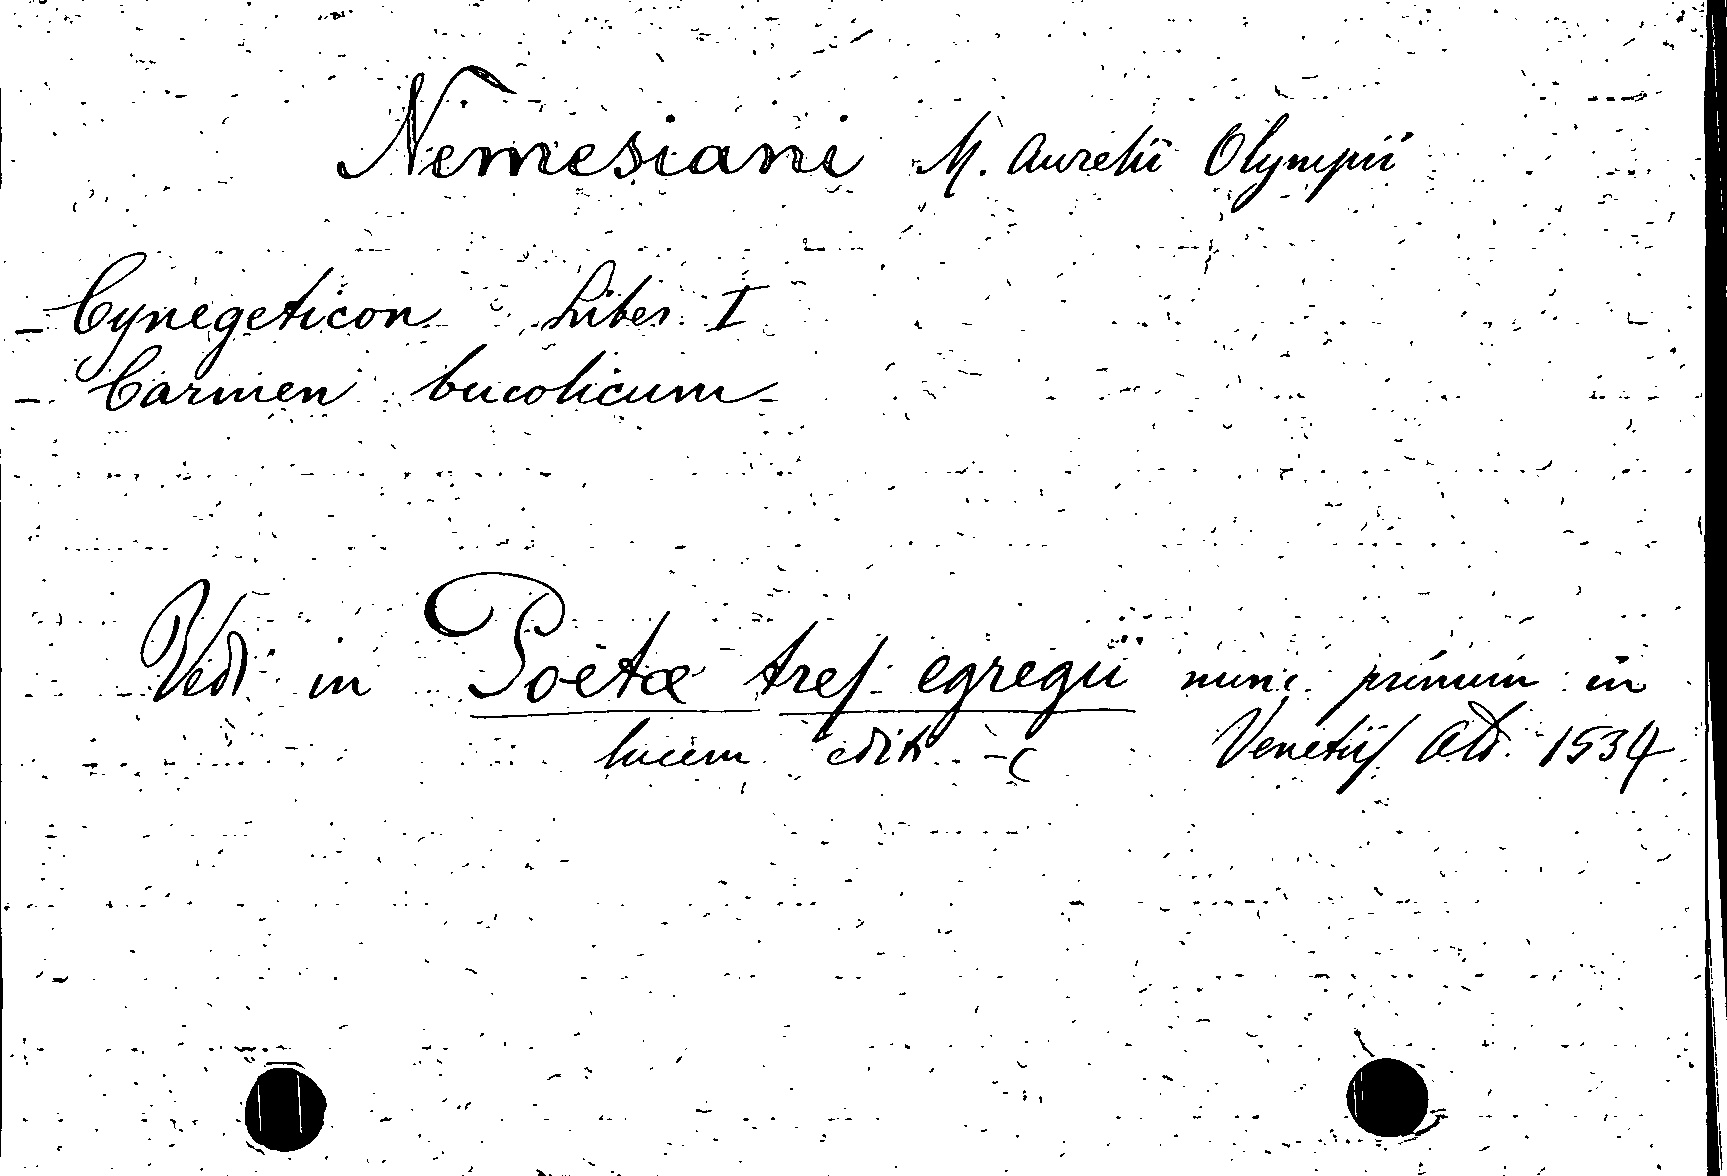 Nemesiani M. Aurelii Olympii
- Cynegeticon Liber I
- Carmen bucolicum
Vedi in Poetæ tres egregii nunc primum in
lucem editi -c Venetiis Ald. 1534